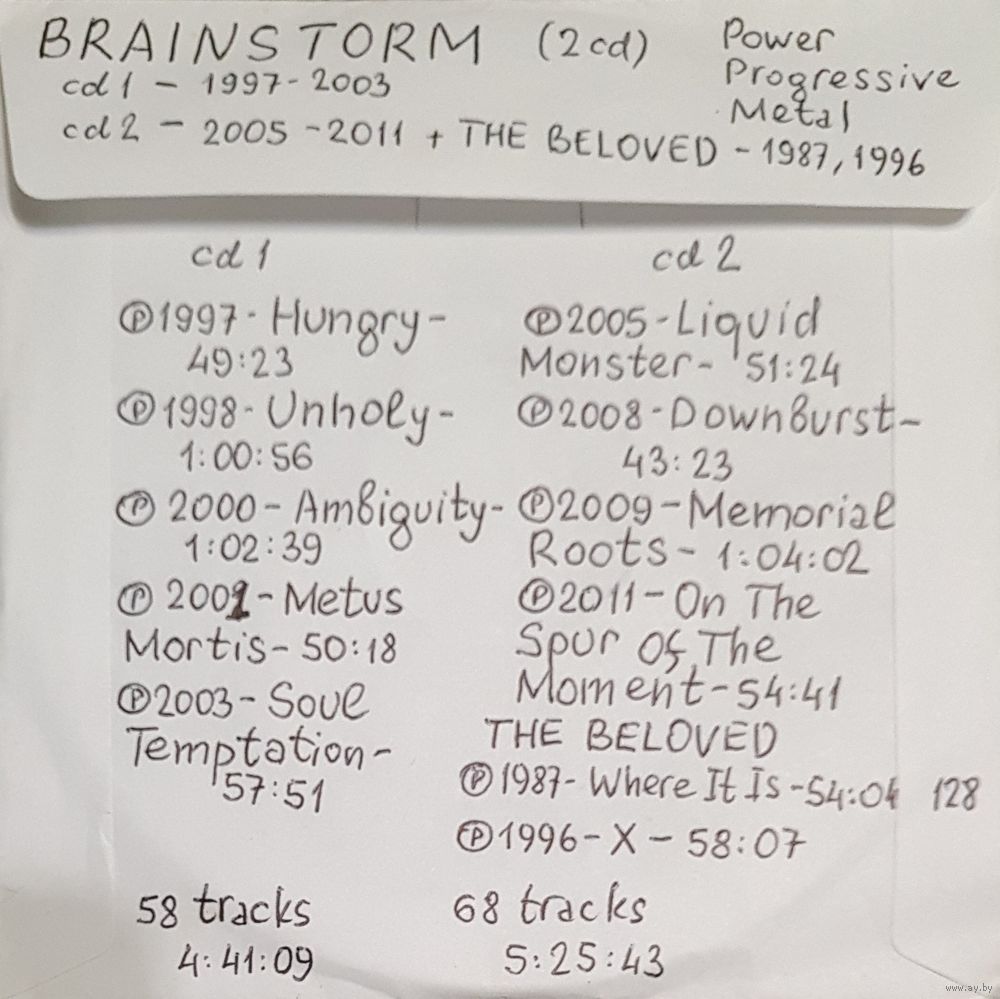 BRAINSTORM (2cd)
Power
Progressive
Metal
cd 1 - 1997-2003
cd 2 - 2005-2011 + THE BELOVED - 1987, 1996
cd 1
℗1997 - Hungry -
49:23
℗1998 - Unholy -
1:00:56
℗ 2000 - Ambiguity -
1:02:39
℗ 2001 - Metus
Mortis - 50:18
℗2003 - Soul
Temptation -
57:51
58 tracks
4:41:09
cd 2
℗2005 - Liquid
Monster - 51:24
℗2008 - Downburst -
43:23
℗2009 - Memorial
Roots - 1:04:02
℗2011 - On The
Spur Of The
Moment - 54:41
THE BELOVED
℗1987 - Where It Is - 54:04 128
℗1996 - X - 58:07
68 tracks
5:25:43
www.ay.by